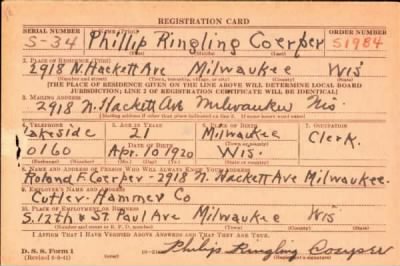 REGISTRATION CARD
SERIAL NUMBER 1. NAME (Print) ORDER NUMBER
S-34 Phillip Ringling Coerper S1984
2. PLACE OF RESIDENCE (Print)
2918 N. Hackett Ave Milwaukee Wis
(Number and street) (Town, township, village, or city) (County) (State)
[THE PLACE OF RESIDENCE GIVEN ON THE LINE ABOVE WILL DETERMINE LOCAL BOARD
JURISDICTION; LINE 2 OF REGISTRATION CERTIFICATE WILL BE IDENTICAL]
3. MAILING ADDRESS
2918 N. Hackett Ave Milwaukee Wis.
[Mailing address if other than place indicated on line 2. If same insert word same]
4. TELEPHONE 5. AGE IN YEARS 6. PLACE OF BIRTH 7. OCCUPATION
Lakeside 21 Milwaukee Clerk.
DATE OF BIRTH
0160 Apr. 10 1920 Wis.
(Exchange) (Number) (Mo.) (Day) (Yr.) (State or country)
8. NAME AND ADDRESS OF PERSON WHO WILL ALWAYS KNOW YOUR ADDRESS
Roland F Coerper - 2918 N. Hackett Ave Milwaukee.
9. EMPLOYER'S NAME AND ADDRESS
Cutler-Hammer Co
10. PLACE OF EMPLOYMENT OR BUSINESS
S. 12th & St. Paul Ave Milwaukee Wis
(Number and street or R. F. D. number) (Town) (County) (State)
I AFFIRM THAT I HAVE VERIFIED ABOVE ANSWERS AND THAT THEY ARE TRUE.
D. S. S. Form 1
(Revised 6-9-41) Philip Ringling Coerper